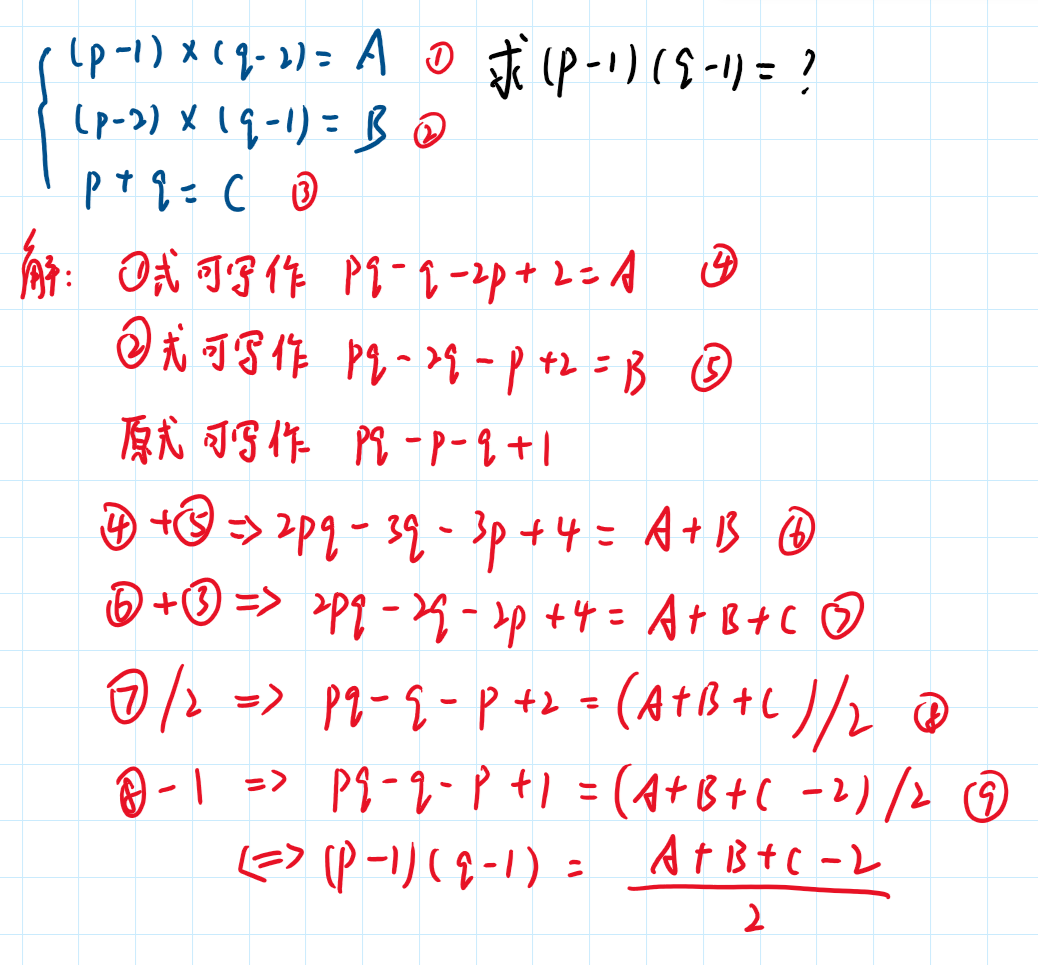 (p-1)×(q-2)= A ① 求(p-1)(q-1)=?
(p-2)×(q-1)= B ②
p+q= C ③
解: ①式可写作 pq-q-2p+2=A ④
②式可写作 pq-2q-p+2=B ⑤
原式可写作 pq-p-q+1
④+⑤=>2pq-3q-3p+4= A+B ⑥
⑥+③=> 2pq-2q-2p+4= A+B+C ⑦
⑦/2 => pq-q-p+2=(A+B+C)//2 ⑧
⑧-1 => pq-q-p+1=(A+B+C-2)/2 ⑨
<=>(p-1)(q-1)= A+B+C-2
2